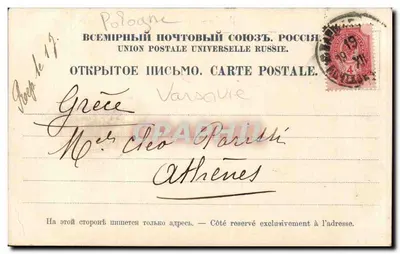 Pologne
ВСЕМІРНЫЙ ПОЧТОВЫЙ СОЮЗЪ. РОССІЯ.
UNION POSTALE UNIVERSELLE RUSSIE.
ОТКРЫТОЕ ПИСЬМО. CARTE POSTALE.
le 19
19
Varsovie
Grèce
Cleo
Athènes
На этой сторонѣ пишется только адресъ. — Côté réservé exclusivement à l'adresse.